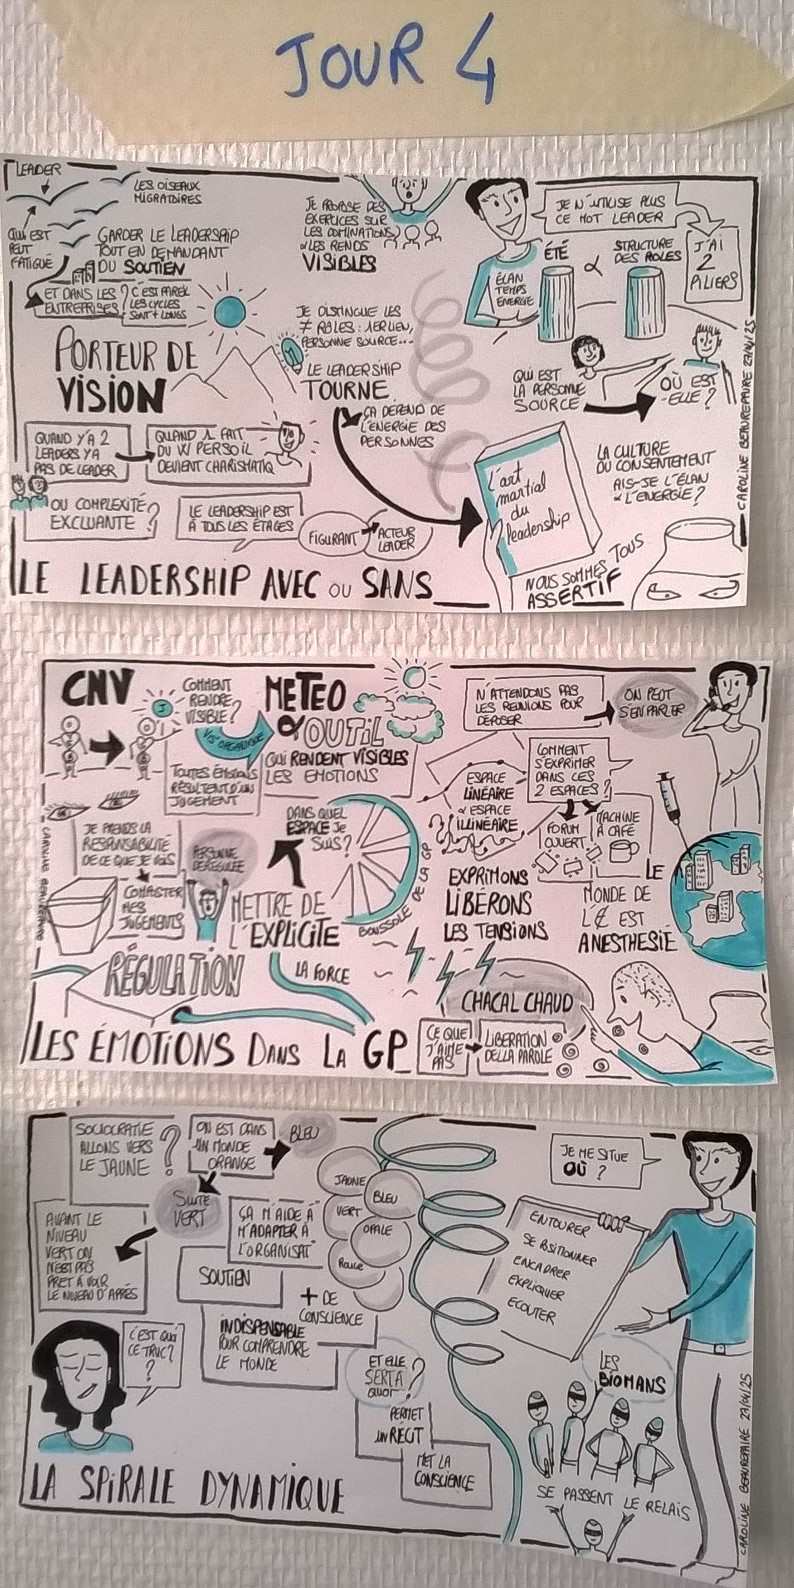 JOUR 4
LEADER
LES OISEAUX
MIGRATOIRES
QUI EST
PEUT
FATIGUÉ
GARDER LE LEADERSHIP
TOUT EN DEMANDANT
DU SOUTIEN
ET DANS LES
ENTREPRISES?
C'EST PAREIL
LES CYCLES
SONT + LONGS
PORTEUR DE
VISION
QUAND Y'A 2
LEADERS Y A
PAS DE LEADER
QUAND 1 FAIT
DU W PERSO IL
DEVIENT CHARISMATIQ
OU COMPLEXITÉ
EXCLUANTE?
LE LEADERSHIP EST
À TOUS LES ÉTAGES
FIGURANT
ACTEUR
LEADER
JE PROPOSE DES
EXERCICES SUR
LES DOMINATIONS
& LES RENDS
VISIBLES
JE DISTINGUE LES
≠ RÔLES : 1ER LIEN,
PERSONNE SOURCE...
LE LEADERSHIP
TOURNE
ÇA DÉPEND DE
L'ENERGIE DES
PERSONNES
JE N'UTILISE PLUS
CE MOT LEADER
J'AI
2
PILIERS
ÉLAN
TEMPS
ENERGIE
ÉTÉ
&
STRUCTURE
DES ROLES
QUI EST
LA PERSONNE
SOURCE
OÙ EST
-ELLE?
L'art
martial
du
leadership
LA CULTURE
DU CONSENTEMENT
AIS-JE L'ÉLAN
& L'ENERGIE?
NOUS SOMMES TOUS
ASSERTIF
CAROLINE BEAUREPAIRE 27/04/25
LE LEADERSHIP AVEC OU SANS
CNV
COMMENT
RENDRE
VISIBLE?
VIS ORGANIQUE
TOUTES ÉMOTIONS
RÉSULTENT D'UN
JUGEMENT
METEO
& OUTIL
QUI RENDENT VISIBLES
LES EMOTIONS
JE PRENDS LA
RESPONSABILITÉ
DE CE QUE JE VOIS
COMPOSTER
MES
JUGEMENTS
PERSONNE
DÉRÉGULÉE
DANS QUEL
ESPACE JE
SUIS?
METTRE DE
L'EXPLICITE
BOUSSOLE DE LA GP
RÉGULATION
LA FORCE
N'ATTENDONS PAS
LES REUNIONS POUR
DÉPOSER
ON PEUT
S'EN PARLER
COMMENT
S'EXPRIMER
DANS CES
2 ESPACES?
ESPACE
LINÉAIRE
& ESPACE
ILLINÉAIRE
FORUM
OUVERT
MACHINE
À CAFÉ
EXPRIMONS
LIBÉRONS
LES TENSIONS
LE
MONDE DE
L'E EST
ANESTHESIÉ
CHACAL CHAUD
CE QUE
J'AIME
PAS
LIBERATION
DE LA PAROLE
CAROLINE BEAUREPAIRE
LES ÉMOTIONS DANS LA GP
SOCIOCRATIE
ALLONS VERS
LE JAUNE?
ON EST DANS
UN MONDE
ORANGE
BLEU
SUITE
VERT
AVANT LE
NIVEAU
VERT ON
N'EST PAS
PRET À VOIR
LE NIVEAU D'APRÈS
ÇA M'AIDE À
M'ADAPTER À
L'ORGANISAT°
SOUTIEN
+ DE
CONSCIENCE
INDISPENSABLE
POUR COMPRENDRE
LE MONDE
JAUNE
BLEU
VERT
OPALE
ROUGE
C'EST QUOI
CE TRUC?
?
ET ELLE
SERT À
QUOI?
PERMET
UN RÉCIT
MET LA
CONSCIENCE
JE ME SITUE
OÙ?
ENTOURER
SE POSITIONNER
ENCADRER
EXPLIQUER
ECOUTER
LES
BIOMANS
SE PASSENT LE RELAIS
CAROLINE BEAUREPAIRE 27/04/25
LA SPIRALE DYNAMIQUE